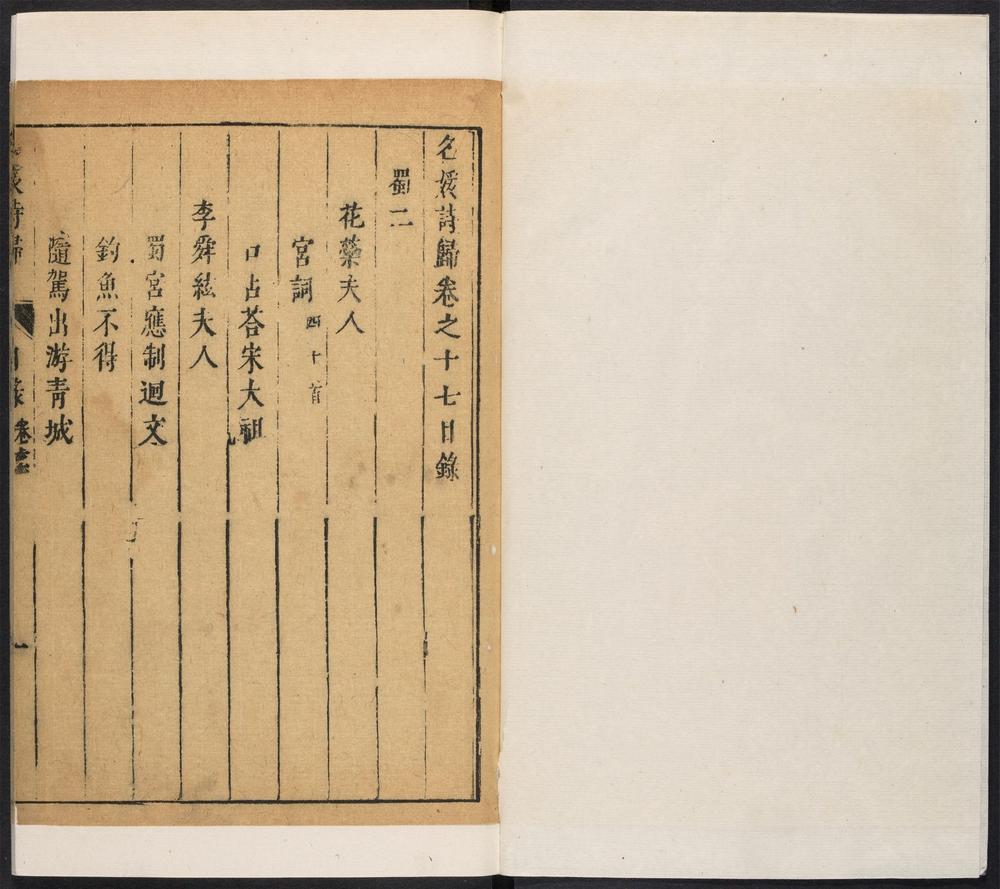 名媛詩歸卷之十七目錄
蜀二
花蘂夫人
宮詞 四十首
口占荅宋大祖
李舜絃夫人
蜀宮應制迴文
釣魚不得
隨駕出游青城
媛詩歸 目錄 卷十七 一